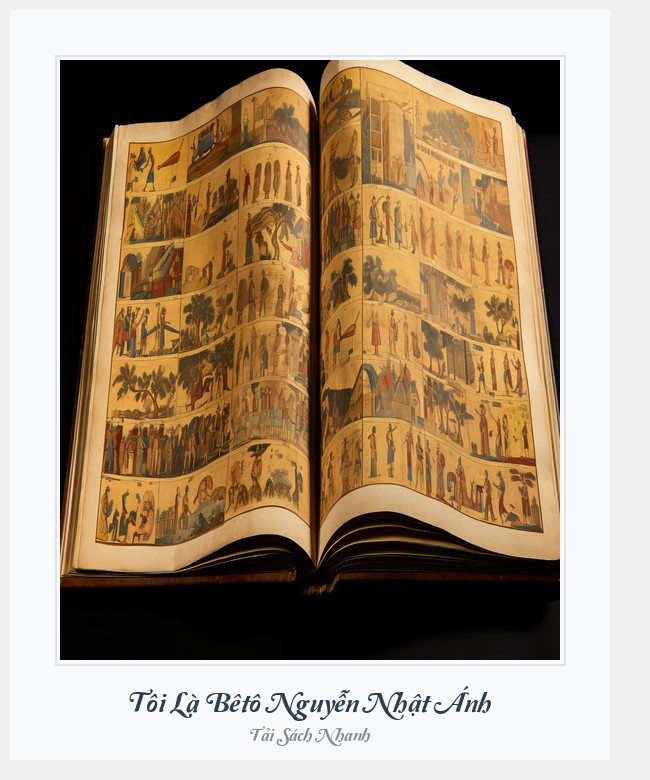 Tôi Là Bêtô Nguyễn Nhật Ánh
Tải Sách Nhanh